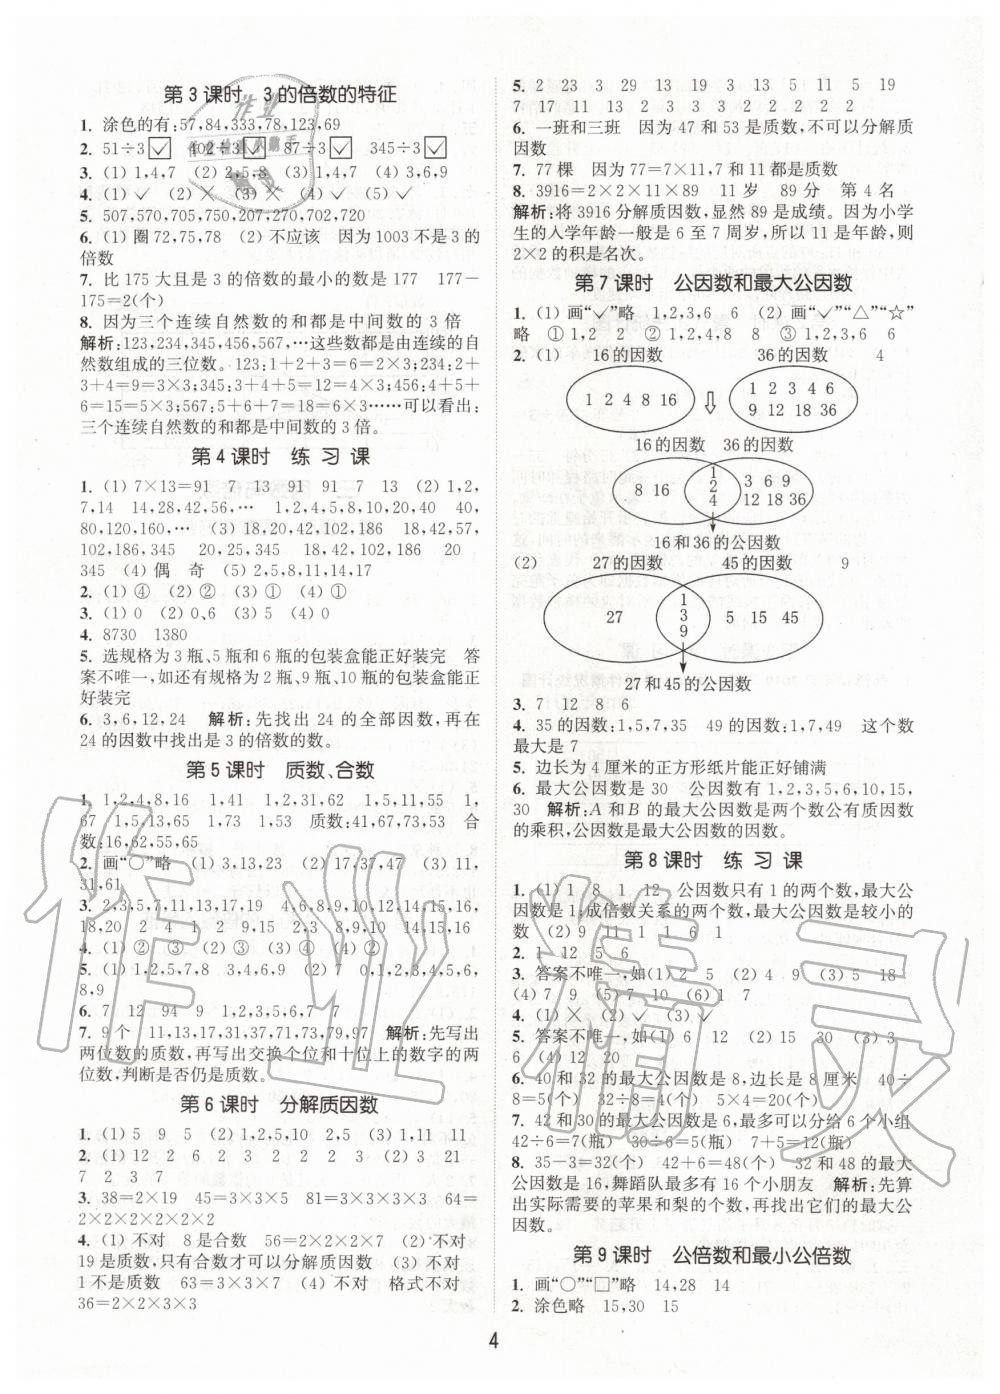 第3课时 3的倍数的特征
1. 涂色的有:57,84,333,78,123,69
2. 51÷3☑ 402÷3☑ 87÷3☑ 345÷3☑
3. (1) 1,4,7 (2) 2,5,8 (3) 1,4,7 (4) 3,6,9
4. (1) ✓ (2) × (3) × (4) ✓ (5) ✓
5. 507,570,705,750,207,270,702,720
6. (1) 圈72,75,78 (2) 不应该 因为1003不是3的
倍数
7. 比175大且是3的倍数的最小的数是177 177-
175=2(个)
8. 因为三个连续自然数的和都是中间数的3倍
解析:123,234,345,456,567,…这些数都是由连续的自
然数组成的三位数。123:1+2+3=6=2×3;234:2+
3+4=9=3×3;345:3+4+5=12=4×3;456:4+5+
6=15=5×3;567:5+6+7=18=6×3……可以看出:
三个连续自然数的和都是中间数的3倍。
第4课时 练习课
1. (1) 7×13=91 7 13 91 91 7 13 (2) 1,2,
7,14 14,28,42,56,… 1,2,4,5,8,10,20,40 40,
80,120,160,… (3) 18,20,42,102,186 18,42,57,
102,186,345 20,25,345 18,42,102,186 20
345 (4) 偶 奇 (5) 2,5,8,11,14,17
2. (1) ④ (2) ① (3) ① (4) ①
3. (1) 0 (2) 0、6 (3) 5 (4) 0
4. 8730 1380
5. 选规格为3瓶、5瓶和6瓶的包装盒能正好装完 答
案不唯一,如还有规格为2瓶、9瓶、10瓶的包装盒能正
好装完
6. 3,6,12,24 解析:先找出24的全部因数,再在
24的因数中找出是3的倍数的数。
第5课时 质数、合数
1. 1,2,4,8,16 1,41 1,2,31,62 1,5,11,55 1,
67 1,5,13,65 1,73 1,53 质数:41,67,73,53 合
数:16,62,55,65
2. 画“○”略 (1) 3,13,23 (2) 17,37,47 (3) 11,
31,61
3. 2,3,5,7,11,13,17,19 4,6,8,9,10,12,14,15,16,
18,20 2 4,6,8,10,12,14,16,18,20 9 14,15,16
4. (1) ② ③ (2) ③ (3) ④ (4) ②
5. (1) 1,2,5,7,8 3,4,6,9 (2) 7 0,1,2,3,4,5,6,
8,9
6. 7 12 94 9 1,2,3,5,6,7 7
7. 9个 11,13,17,31,37,71,73,79,97 解析:先写出
两位数的质数,再写出交换个位和十位上的数字的两
位数,判断是否仍是质数。
第6课时 分解质因数
1. (1) 5 9 5 (2) 1,2,5,10 2,5 (3) 1,11 11
2. (1) 12 2 6 2 3 2 2 3 (2) 3 21
7 2 3 7
3. 38=2×19 45=3×3×5 81=3×3×3×3 64=
2×2×2×2×2×2
4. (1) 不对 8是合数 56=2×2×2×7 (2) 不对
19是质数,只有合数才可以分解质因数 (3) 不对
1不是质数 63=3×3×7 (4) 不对 格式不对
36=2×2×3×3
5. 2 23 3 29 13 2 3 5 13 5 11 5 19
7 17 11 2 3 2 2 3 2 2 2 2 2 2
6. 一班和三班 因为47和53是质数,不可以分解质
因数
7. 77棵 因为77=7×11,7和11都是质数
8. 3916=2×2×11×89 11岁 89分 第4名
解析:将3916分解质因数,显然89是成绩。因为小学
生的入学年龄一般是6至7周岁,所以11是年龄,则
2×2的积是名次。
第7课时 公因数和最大公因数
1. (1) 画“✓”略 1,2,3,6 6 (2) 画“✓”“△”“☆”
略 ① 1,2 2 ② 1,2,4,8 8 ③ 1,2,3,6 6
2. (1) 16的因数 36的因数 4
1 2 4 8 16
1 2 3 4 6
9 12 18 36
16的因数 36的因数
8 16
1
2
4
3 6 9
12 18 36
16和36的公因数
(2) 27的因数 45的因数 9
27
1
3
9
5 15 45
27和45的公因数
3. 7 12 8 6
4. 35的因数:1,5,7,35 49的因数:1,7,49 这个数
最大是7
5. 边长为4厘米的正方形纸片能正好铺满
6. 最大公因数是30 公因数有1,2,3,5,6,10,15,
30 解析:A和B的最大公因数是两个数公有质因数
的乘积,公因数是最大公因数的因数。
第8课时 练习课
1. (1) 1 8 1 12 公因数只有1的两个数,最大公
因数是1;成倍数关系的两个数,最大公因数是较小的
数 (2) 9 11 1 1 6 1
2. 1 12 5 6
3. 答案不唯一,如(1) 2 5 (2) 4 9 (3) 5 18
(4) 7 9 (5) 7 10 (6) 1 7
4. (1) × (2) ✓ (3) ✓
5. 答案不唯一,如(1) 6 12 (2) 15 30 (3) 3
6 (4) 12 20
6. 40和32的最大公因数是8,边长是8厘米 40÷
8=5(个) 32÷8=4(个) 5×4=20(个)
7. 42和30的最大公因数是6,最多可以分给6个小组
42÷6=7(瓶) 30÷6=5(瓶) 7+5=12(瓶)
8. 35-3=32(个) 42+6=48(个) 32和48的最大
公因数是16,舞蹈队最多有16个小朋友 解析:先算
出实际需要的苹果和梨的个数,再找出它们的最大公
因数。
第9课时 公倍数和最小公倍数
1. 画“○”“□”略 14,28 14
2. 涂色略 15,30 15
4
作业精灵